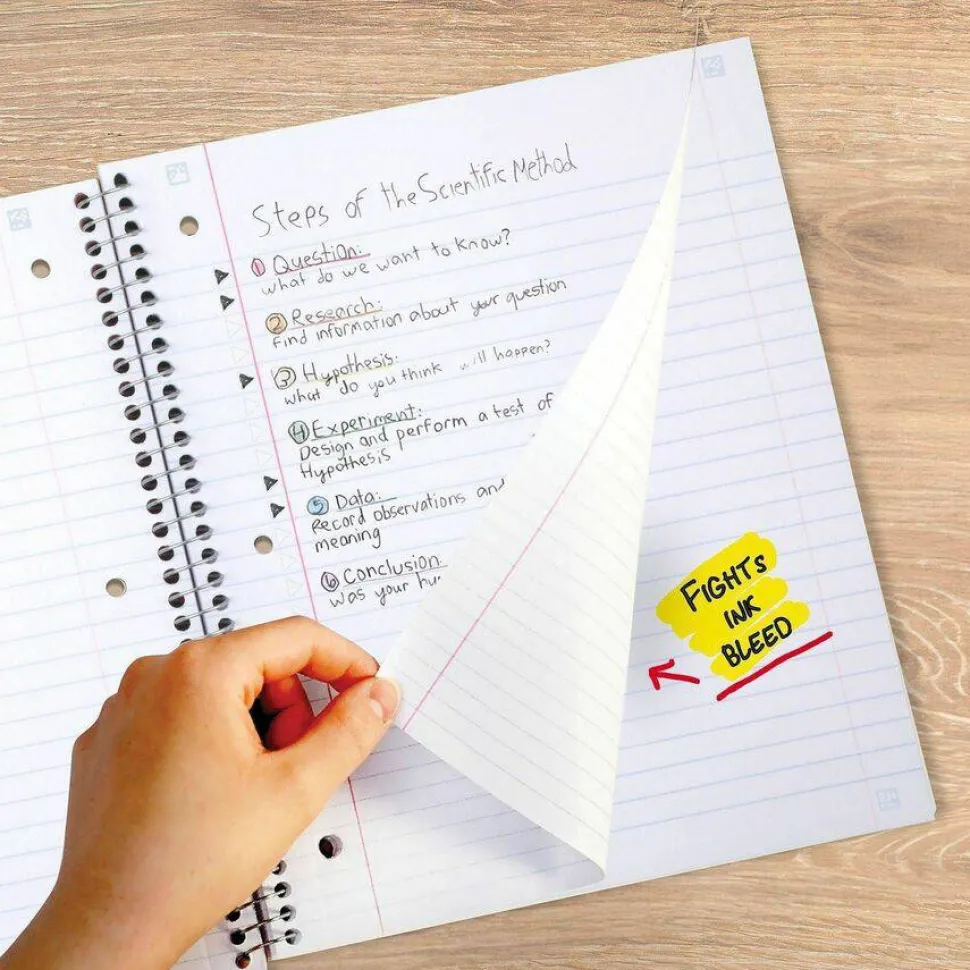 Steps of the Scientific Method
1 Question:
what do we want to know?
2 Research:
Find information about your question
3 Hypothesis:
what do you think will happen?
4 Experiment:
Design and perform a test of
Hypothesis
5 Data:
Record observations and
meaning
6 Conclusion
was your
FIGHTS
INK
BLEED